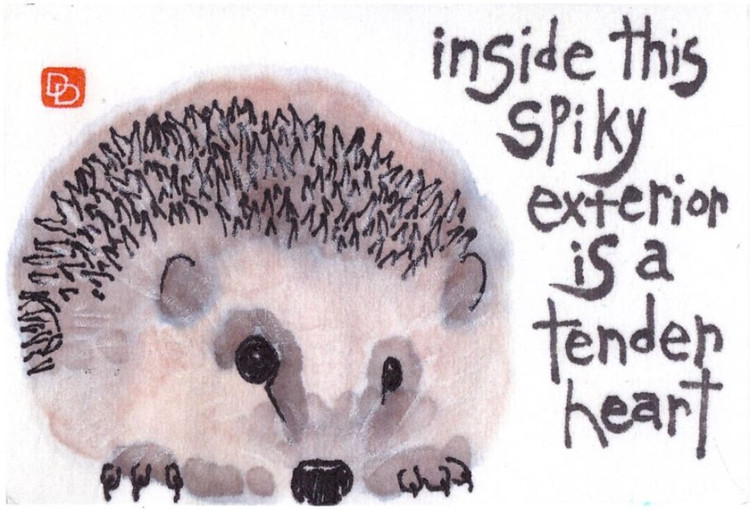 DD
inside this
spiky
exterior
is a
tender
heart